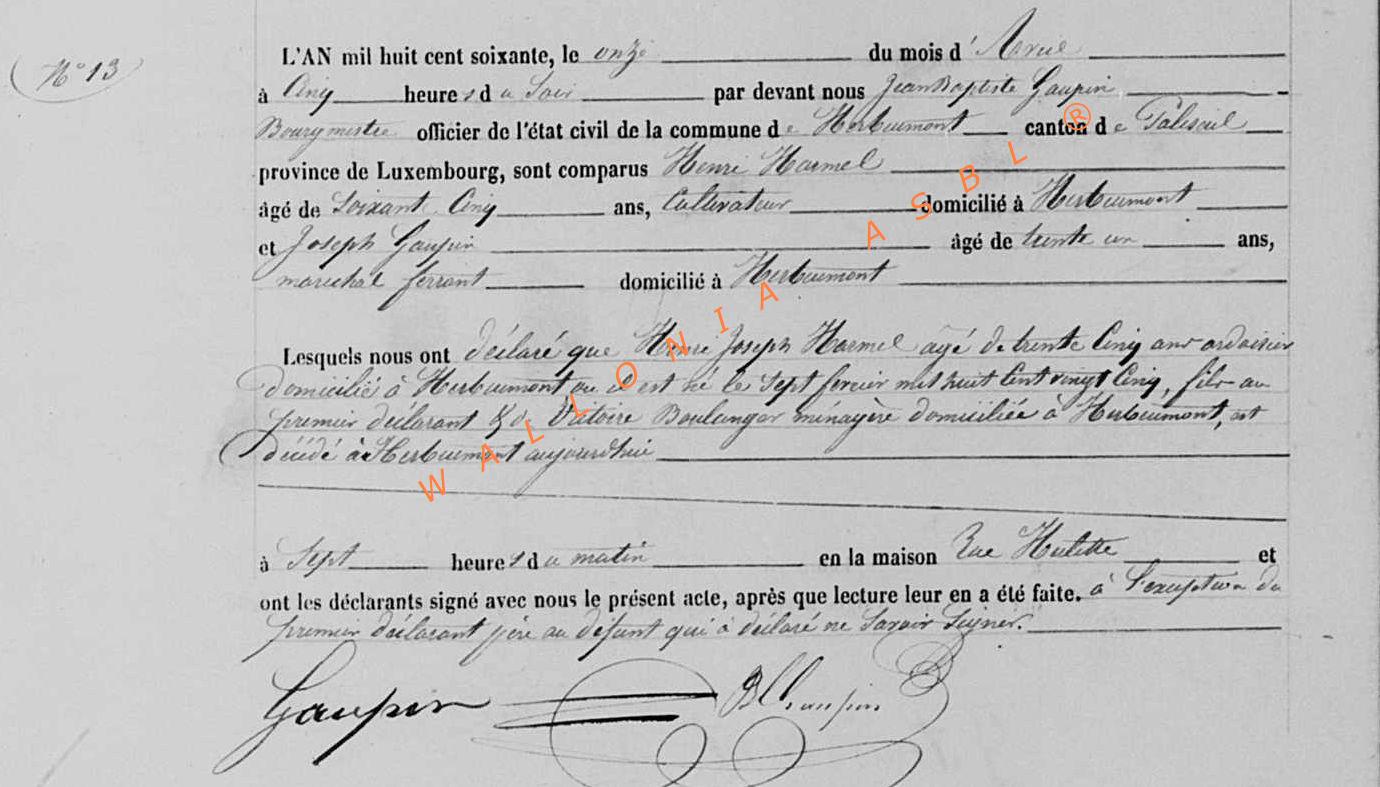 N° 13
L'AN mil huit cent soixante, le onze du mois d' Avril
à Cinq heures du Soir par devant nous Jean Baptiste Gaupin
Bourgmestre officier de l'état civil de la commune de Herbeumont canton de Paliseul
province de Luxembourg, sont comparus Henri Harmel
âgé de Soixant Cinq ans, Cultivateur domicilié à Herbeumont
et Joseph Gaupin âgé de trente un ans,
marechal ferrant domicilié à Herbeumont
Lesquels nous ont déclaré que Henri Joseph Harmel agé de trente Cinq ans ardoisier
domicilié à Herbeumont ou il est né le Sept fevrier mil huit Cent vingt Cinq, fils au
premier déclarant & de Victoire Boulanger ménagère domiciliée à Herbeumont, est
décédé à Herbeumont aujourdhui
à Sept heures du matin en la maison Rue Hulette et
ont les déclarants signé avec nous le présent acte, après que lecture leur en a été faite. à l'exception du
premier déclarant père au défunt qui a déclaré ne Savoir Signer.
Gaupin
WALLONIA ASBL ®